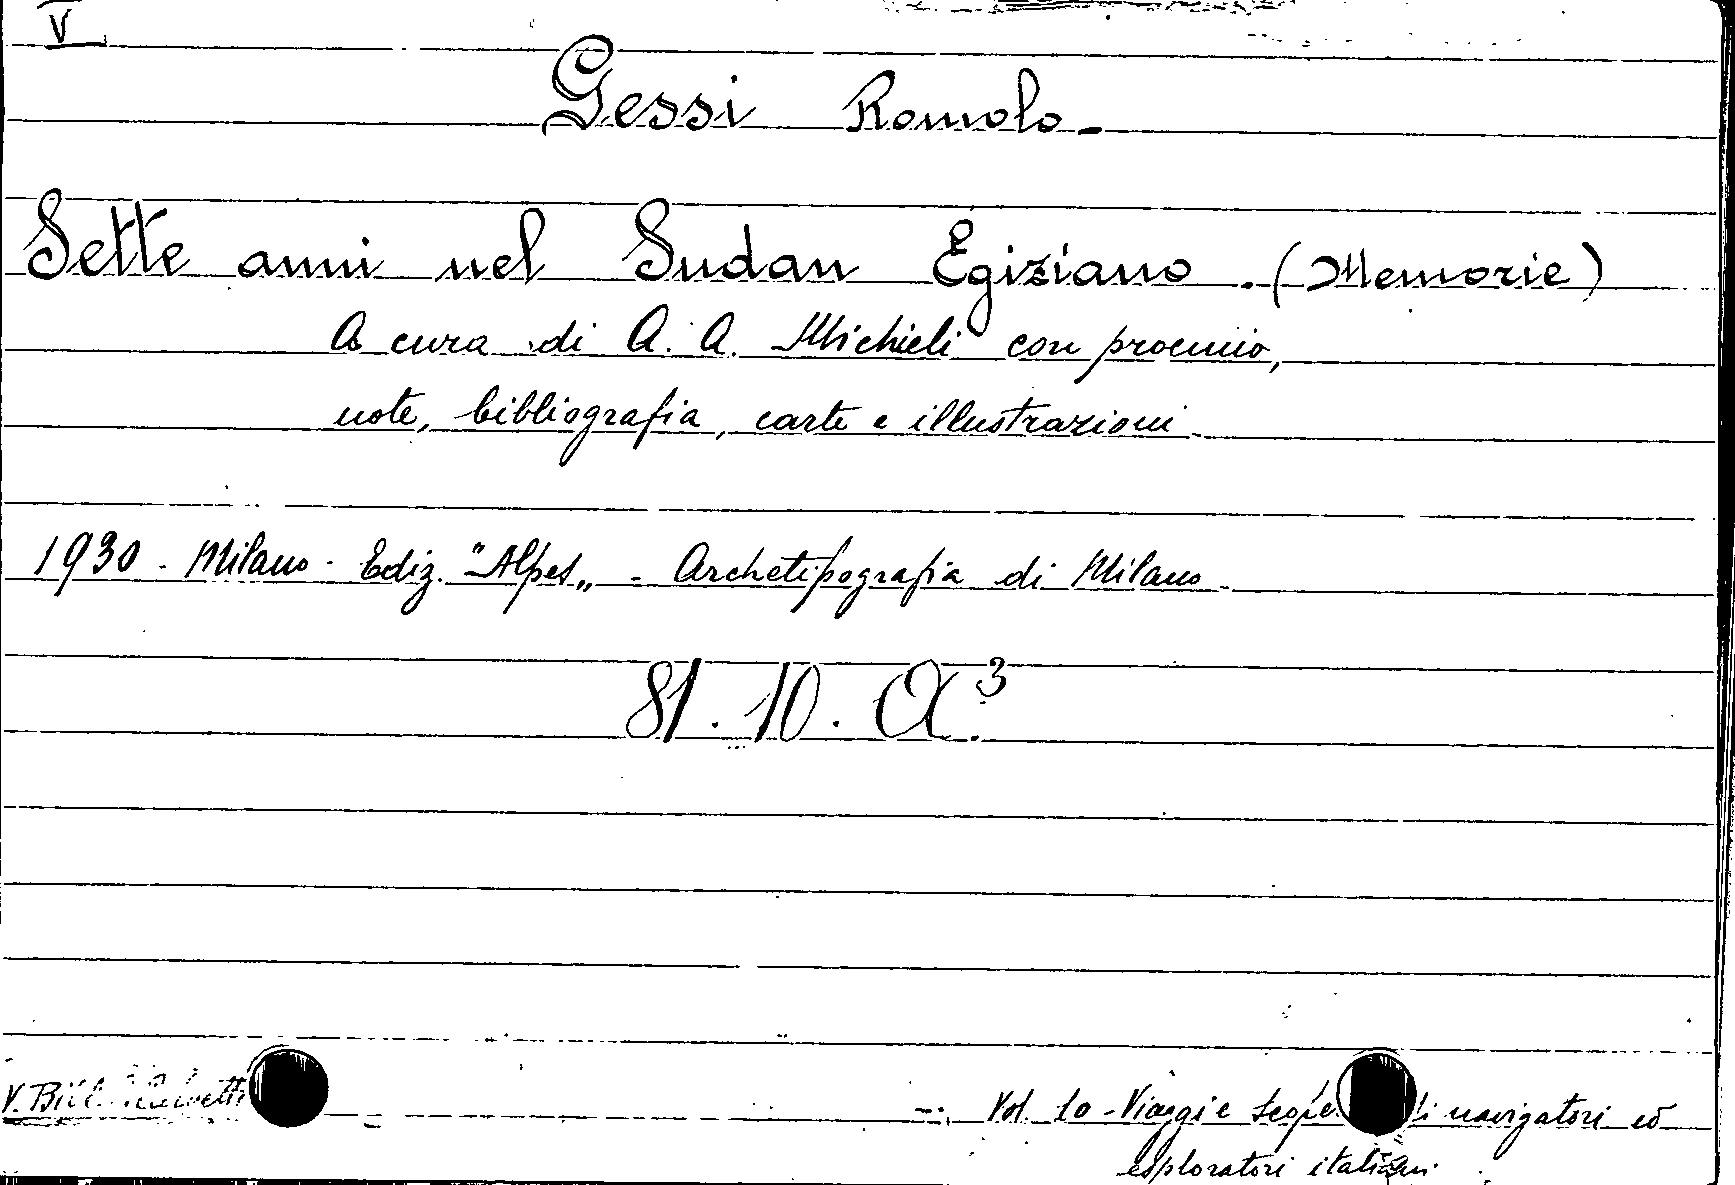 V
Gessi Romolo -
Sette anni nel Sudan Egiziano. (Memorie)
A cura di A. A. Michieli con proemio,
note, bibliografia, carte e illustrazioni
1930 - Milano - Ediz. "Alpes" - Archetipografia di Milano
81. 10. A.3
V. Bibl.
Vol. 10 - Viaggi e scope di navigatori ed
esploratori italiani.